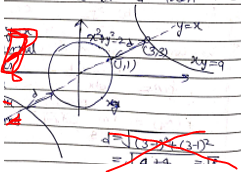 y=x
x²+y²=2
(3,3)
(1,1)
xy=9
d
d = √(3-1)²+(3-1)²
= √4+4 =